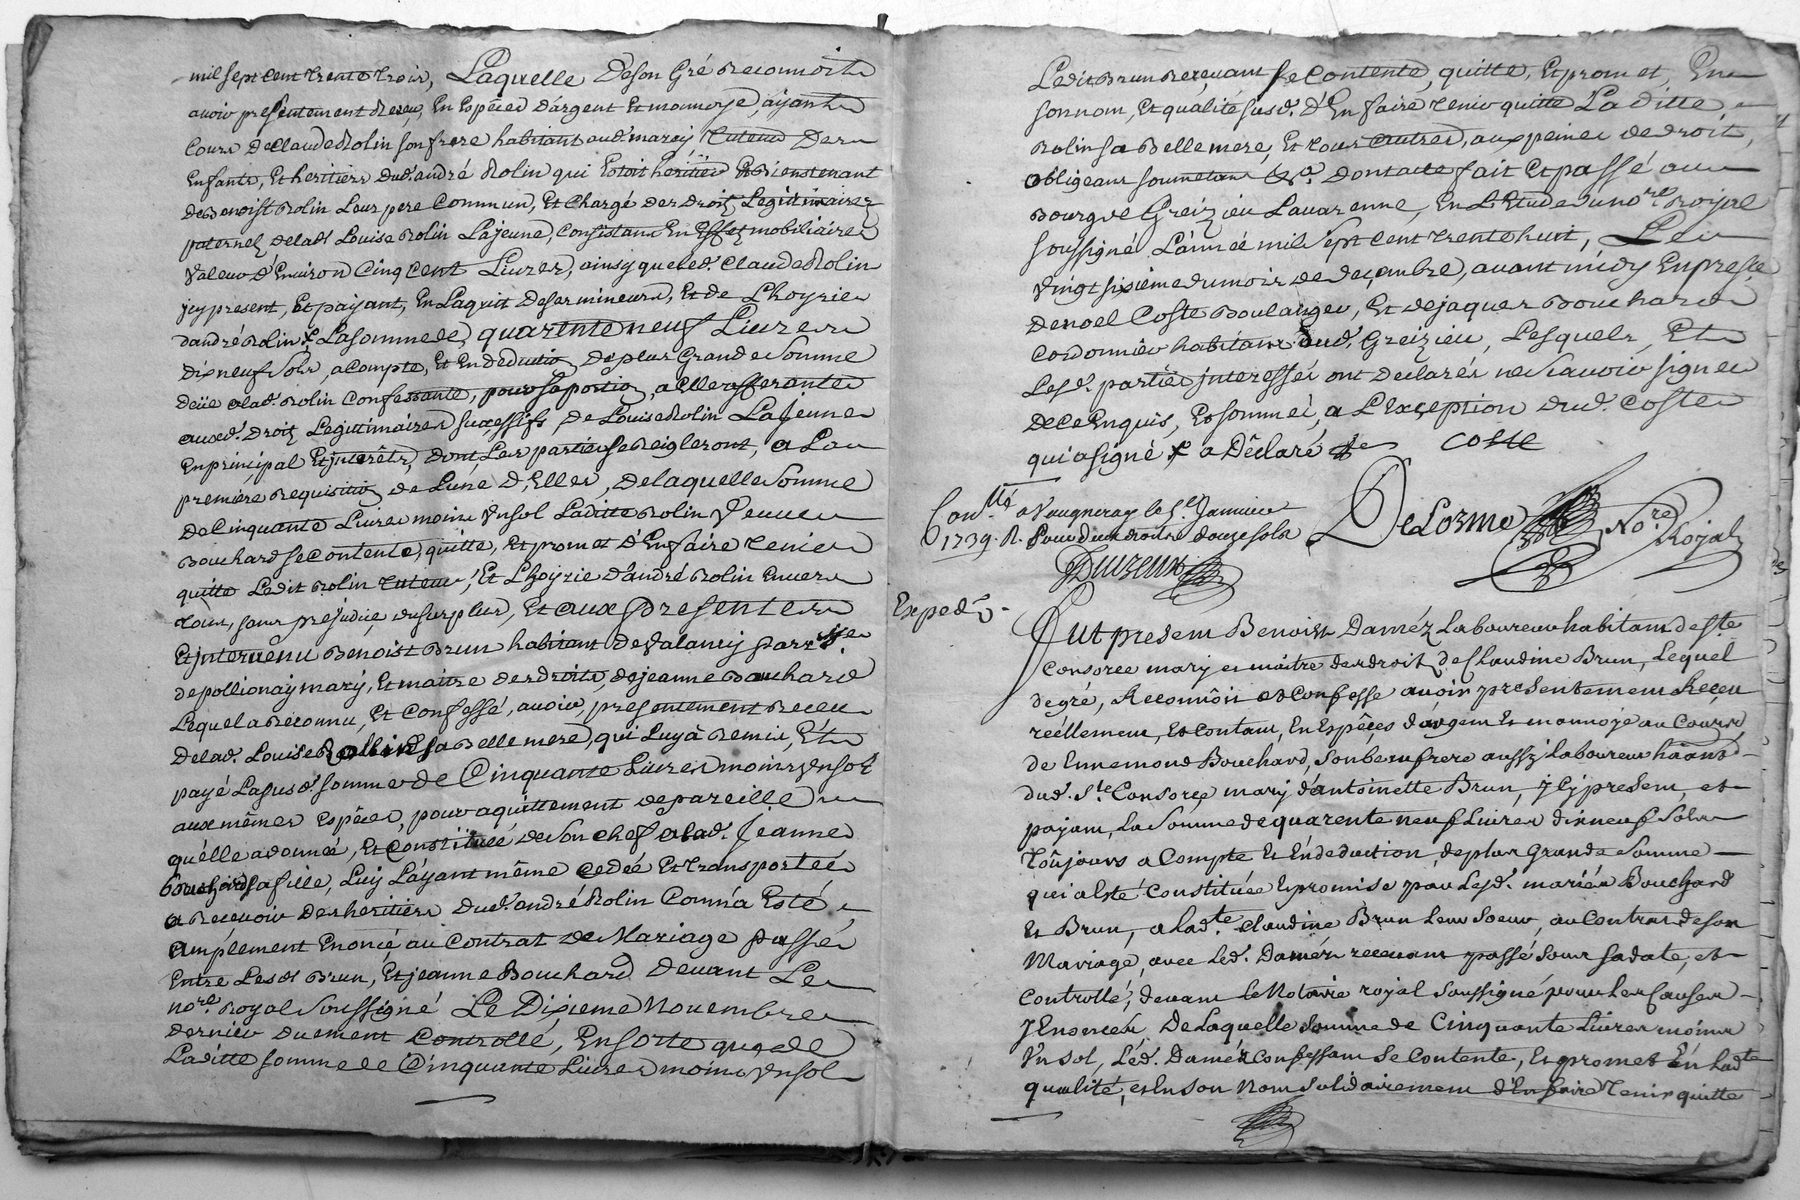 mil sept cent trente trois, Laquelle De son Gré Reconnoit
avoir presentement Receu, En Espêces d'argent Et monnoye, ayant
Cours De Claude Rolin son frere habitant aud. marcy, tuteur Des
Enfants, Et heritiers dud. andré Rolin qui Estoit heritier Et Bientenant
de Benoist Rolin Leur pere Commun, Et Chargé des Droitz Legitimaires
paternelz de lad. Louise Rolin Lajeune, Consistant En Effetz mobiliaires
Valeur d'Environ Cinq cent Livres, ainsy que led. Claude Rolin
jcy present, Et payant, En Laquit de ses mineurs, Et de L'hoyrie
d'andré Rolin Lasomme de quarente neuf Livres
Dix neuf Sols, a Compte, Et En deduction De plus Grande Somme
deüe alad. Rolin Confessante, pour sa portion, a Elle afferante
auxd. Droitz Legitimaires Sucessifs de Louise Rolin LaJeune
En principal Et jnterêts, dont Les parties se Reigleront, a La
premiere Requisition de Lune D'Elles, De laquelle Somme
De Cinquante Livres moins Un sol Laditte Rolin Veuve
Bouchard se Contente, quitte, Et promet d'En faire tenir
quitte Ledit Rolin tuteur, Et L'hoyrie d'andré Rolin Envers
tous, sans prejudice du surplus, Et aux presentes
Et jntervenu Benoist Brun habitant de Valancy parr.sse
de pollionay mary, Et maitre des droits, de jeanne Bouchard
Lequel a Reconnu, Et Confessé, avoir, presentement Receu
De lad. Louise Rollin sa Belle mere, qui Luy à Remis, Et
payé La susd. somme de Cinquante Livres moins Un sol
aux mêmes Espêces, pour aquittement de pareille
qu'elle a donnée, Et Constituée de Son chef alad. Jeanne
Bouchard sa fille, Luy Layant même cedée Et transportée
a Recevoir Des heritiers dud. andré Rolin Comm'a Esté
amplement Enoncé au Contrat de Mariage passé
Entre Lesd. Brun, Et jeanne Bouchard Devant Le
no.re Royal Soussigné Le Dixieme Novembre
dernier Duement Controllé, En sorte que de
Laditte somme de Cinquante Livres moins Un sol
Ledit Brun Recevant se Contente, quitte, Et promet, En
son nom, Et qualité susd. d'En faire tenir quitte Laditte
Rolin sa Belle mere, Et tous autres, aux peines de droit,
obligeant soumetant &.a Dont acte fait Et passé au
Bourg de Greizieu Lavarenne, En L'Etude du no.re Royal
soussigné L'année mil Sept Cent trente huit, Le
Vingt sixieme du mois de deçambre, avant midy En pres.ce
de noel Coste Boulanger, Et de jaques Bouchard
Cordonnier habitans aud. Greizieu, Lesquels, Et
Lesd. parties jnteressées ont Declarés ne Scavoir signer
De Ce Enquis, Et sommé, a L'exception dud. Coste
qui a signé a Déclaré
Coste
Con.llé a Vaugneray le 5.e Janvier
1739. R. Pour deux droits douze sols
Delorme No.re Royal
Expedié.
Fut present Benoist Daméz Laboureur habitant de S.te
Consorce mary et maitre des droitz de Claudine Brun, Lequel
de gré, Reconnoit et Confesse avoir presentement Receu
réellement, et Contant, En Espêces d'argent Et monnoye au Cours
de Ennemond Bouchard, Son beaufrere aussy Laboureur hâant
dud. S.te Consorce mary d'antoinette Brun, jcy present, et
payant, La Somme de quarente neuf Livres dixneuf Sols
toûjours a Compte Et En deduction, de plus Grande Somme
qui a Esté Constituée Et promise par Lesd. mariés Bouchard
Et Brun, a lad.te Claudine Brun Leur Soeur, au Contrat de son
Mariage, avec Led. Daméz recevant passé sous sa date, et
Controllé, devant Le Notaire royal Soussigné pour Les Causes
y Enoncées De Laquelle Somme de Cinquante Livres moins
Un sol, Led. Daméz Confessant Se Contente, Et promet En Lad.te
qualité, et En son Nom Solidairement d'En faire tenir quitte